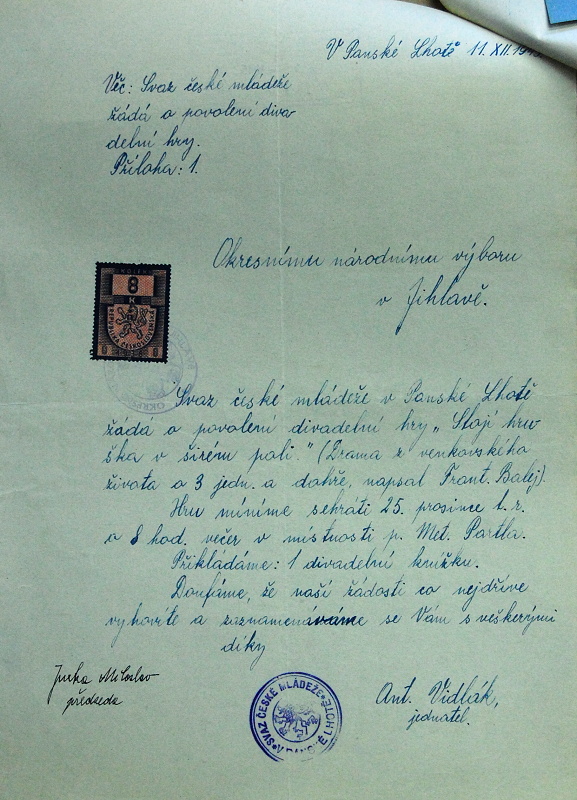 V Panské Lhotě 11. XII. 
Věc: Svaz české mládeže
žádá o povolení diva-
delní hry.
Příloha: 1.
Okresnímu národnímu výboru
v Jihlavě.
KOLEK
8
K
REPUBLIKA ČESKOSLOVENSKÁ
8 8
Svaz české mládeže v Panské Lhotě
žádá o povolení divadelní hry „Stojí hru-
ška v širém poli." (Drama z venkovského
života o 3 jedn. a dohře, napsal Frant. Balej).
Hru míníme sehráti 25. prosince t. r.
o 8 hod. večer v místnosti p. Met. Partla.
Přikládáme: 1 divadelní knížku.
Doufáme, že naší žádosti co nejdříve
vyhovíte a znamenáváme se Vám s veškerými
díky
Miloslav
předseda
SVAZ ČESKÉ MLÁDEŽE
V PANSKÉ LHOTĚ
Ant. Vidlák,
jednatel.